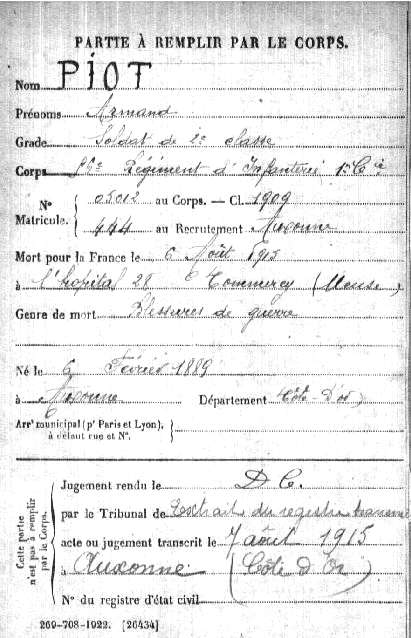 PARTIE À REMPLIR PAR LE CORPS.
Nom PIOT
Prénoms Armand
Grade Soldat de 2e classe
Corps Régiment d'Infanterie 1e Cie
N° Matricule. { 05012 au Corps. — Cl. 1909
444 au Recrutement Auxonne
Mort pour la France le 6 Août 1915
à l'hopital 28 Commercy (Meuse)
Genre de mort Blessures de guerre
Né le 6 Février 1889
à Auxonne Département Côte-D'or
Arrt municipal (pr Paris et Lyon), }
à défaut rue et N°.
Cette partie n'est pas à remplir par le Corps.
Jugement rendu le D.C.
par le Tribunal de Extrait du registre
acte ou jugement transcrit le 7 août 1915
à Auxonne (Côte d'Or)
N° du registre d'état civil
269-708-1922. [26434]